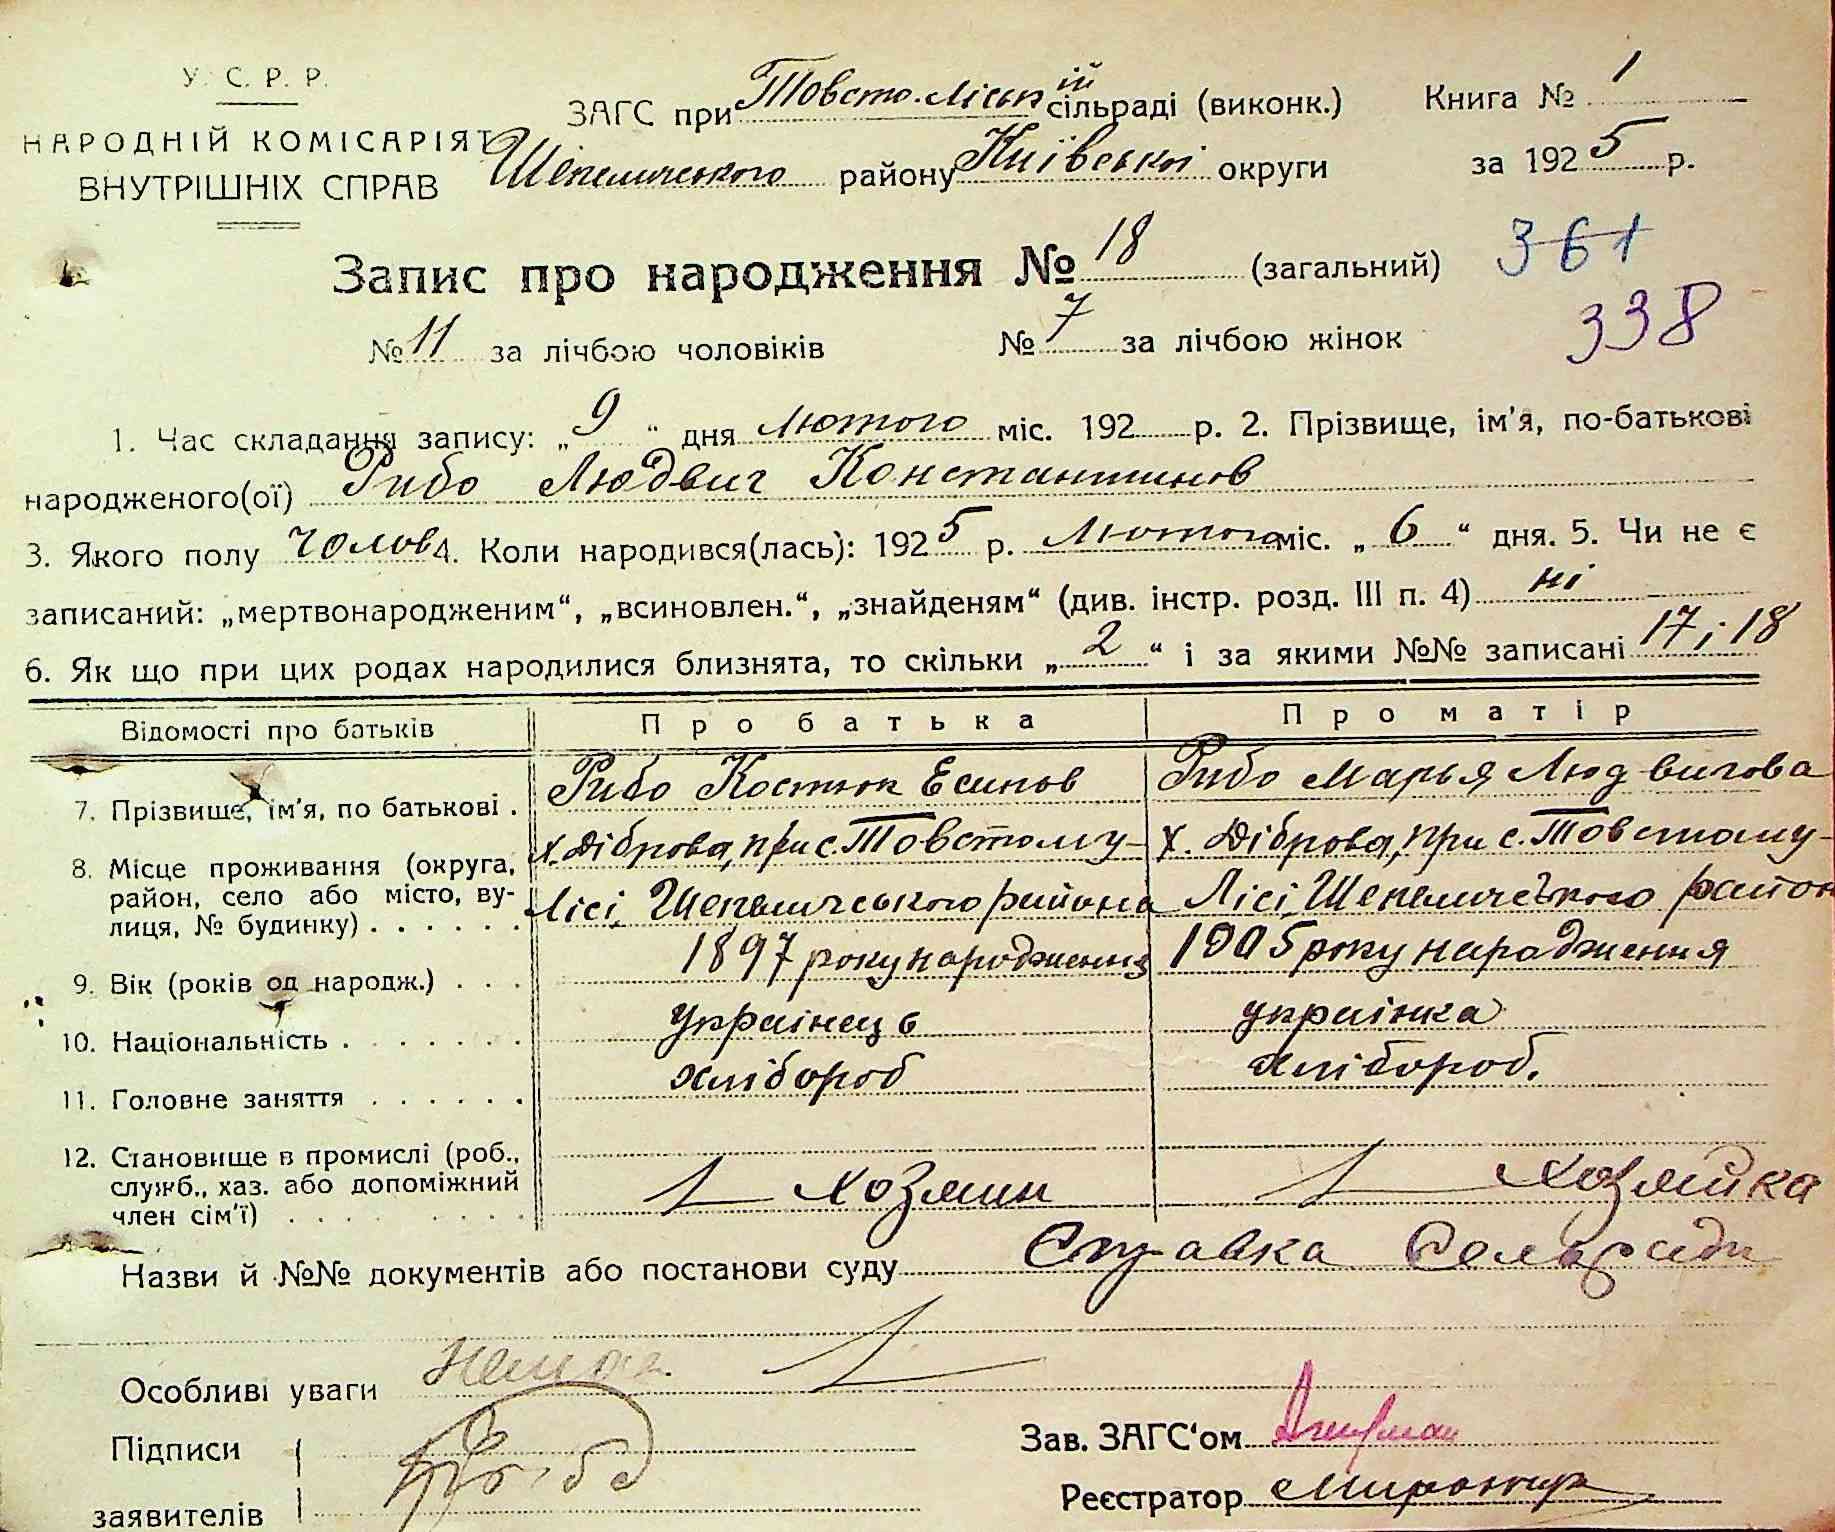 У. С. Р. Р.
НАРОДНІЙ КОМІСАРІЯТ
ВНУТРІШНІХ СПРАВ
ЗАГС при Товсто-Ліській сільраді (виконк.) Книга № 1
Шепелицького району Київської округи за 1925 р.
Запис про народження № 18 (загальний) 361
№ 11 за лічбою чоловіків № 7 за лічбою жінок 338
1. Час складання запису: „9" дня Лютого міс. 192 р. 2. Прізвище, ім'я, по-батькові
народженого(ої) Рибо Людвиг Константинов
3. Якого полу чолов 4. Коли народився(лась): 1925 р. Лютого міс. „6" дня. 5. Чи не є
записаний: „мертвонародженим", „всиновлен.", „знайденям" (див. інстр. розд. III п. 4) ні
6. Як що при цих родах народилися близнята, то скільки „2" і за якими №№ записані 17 і 18
Відомості про батьків Про батька Про матір
7. Прізвище, ім'я, по батькові . Рибо Костюк Есипов Рибо Марья Людвигова
8. Місце проживання (округа, х. Діброва, при с. Товстому- х. Діброва, при с. Товстому-
район, село або місто, ву- Лісі, Шепеличського района Лісі, Шепеличського район
лиця, № будинку) . . . . . .
9. Вік (років од народж.) . . . 1897 року народження 1905 року народження
10. Національність . . . . . . . українець українка
11. Головне заняття . . . . . . хлібороб хлібороб.
12. Становище в промислі (роб.,
служб., хаз. або допоміжний хозяин хозяйка
член сім'ї) . . . . . . . .
Назви й №№ документів або постанови суду Справка Сельради
Особливі уваги немає.
Підписи
заявителів
Зав. ЗАГС'ом
Реєстратор